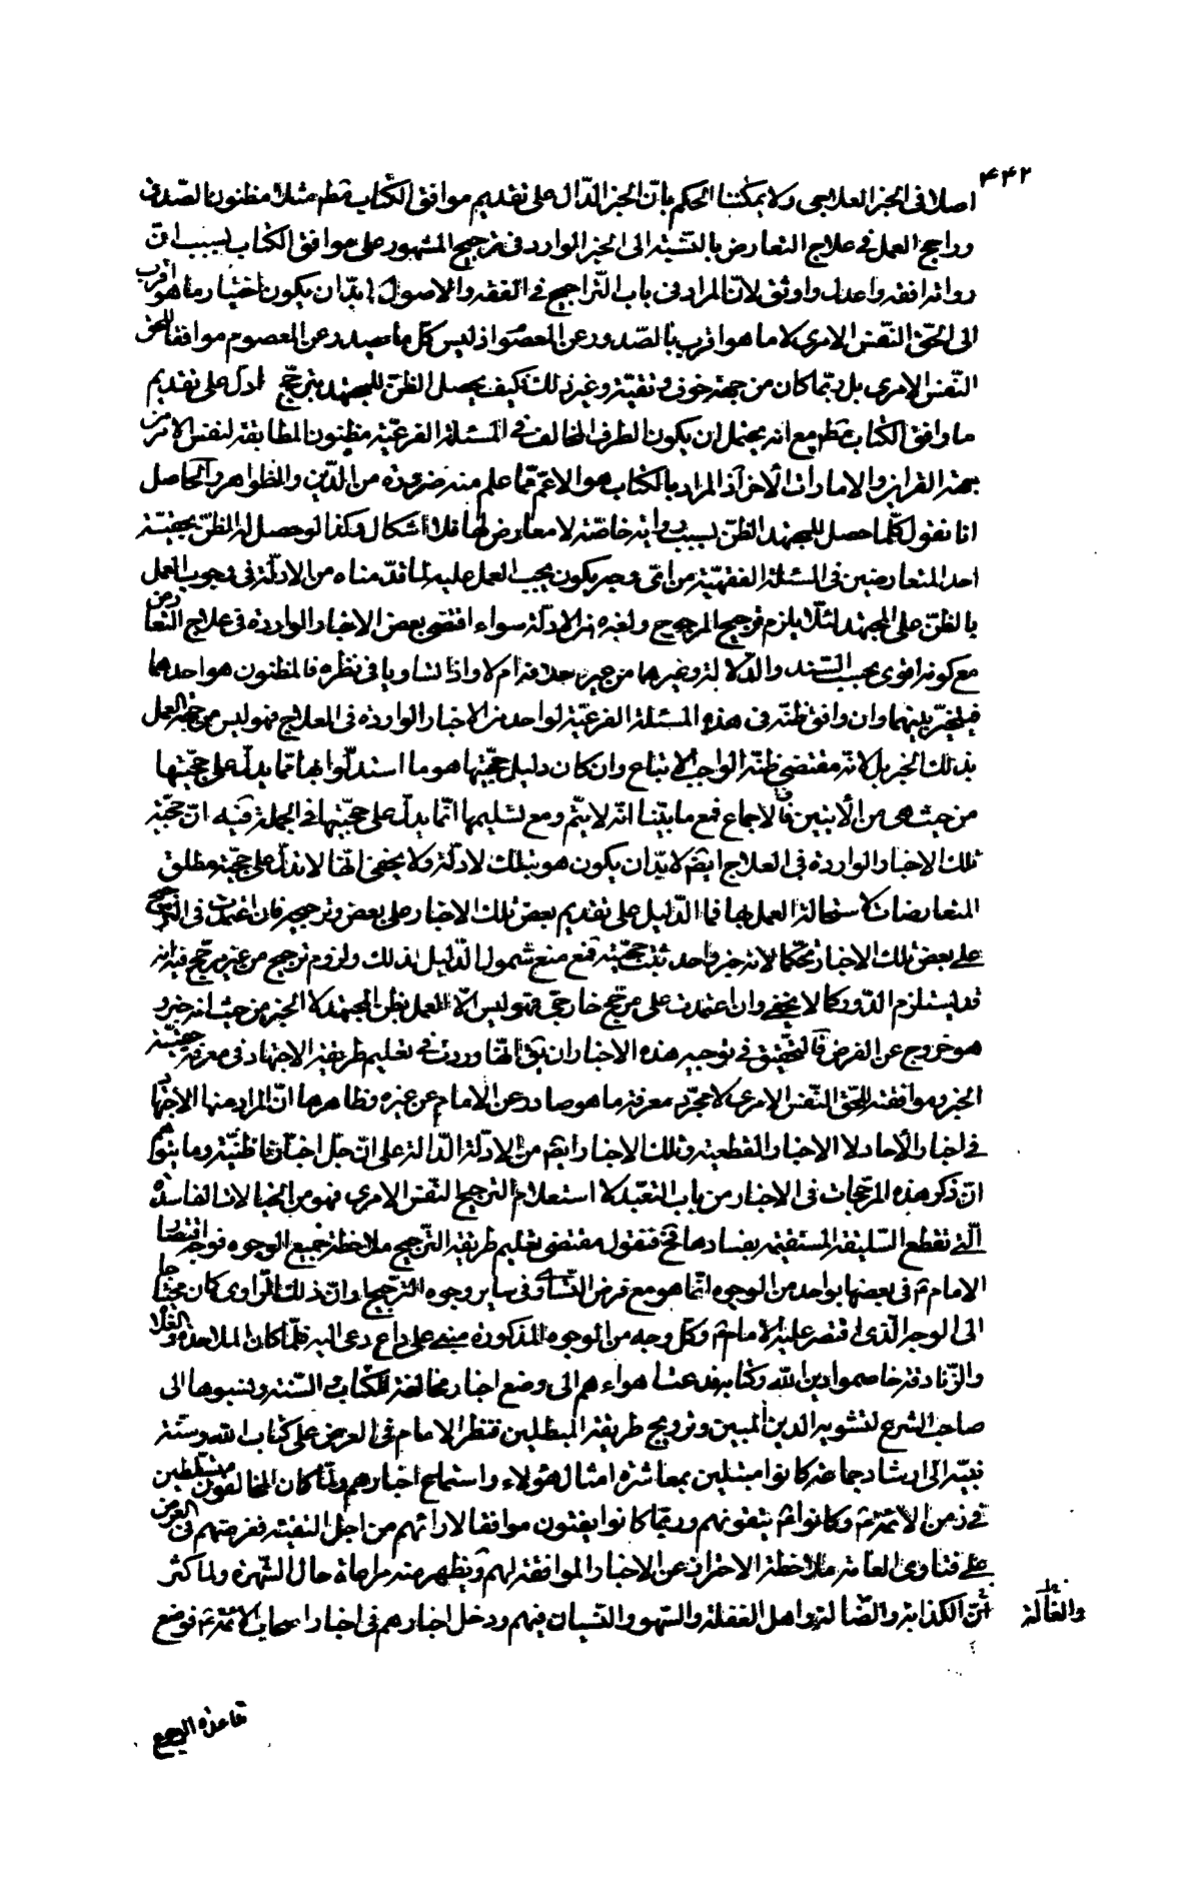 ٤٤٢
اصلا فى الخبر العلاجى ولا يمكننا الحكم بانّ الخبر الدّال على تقديم موافق الكتاب قط مثلا مظنون الصّدق
وراجح العمل فى علاج التعارض بالنّسبة الى الخبر الوارد فى ترجيح المشهور على موافق الكتاب بسبب انّ
رواته افقه واعدل واوثق لانّ المراد فى باب التّراجيح فى الفقه والاصول لا بدّ ان يكون اختيار ما هو اقرب
الى الحقّ النّفس الامرى لا ما هو اقرب بالصّدور عن المعصوم اذ ليس كلّ ما يصدر عن المعصوم موافقا للحق
النّفس الامرى بل ربّما كان من جهة خوف وتقيّة وغير ذلك فكيف يحصل الظنّ للمجتهد بترجّح ما دلّ على تقديم
ما وافق الكتاب قط مع انه يحتمل ان يكون الطرف المخالف فى المسئلة الفرعيّة مظنون المطابقة لنفس الامر من
جهة القراين والامارات الاخر اذ المراد بالكتاب هو الاعمّ ممّا علم منه ضرورة من الدّين والظواهر والحاصل
انا نقول كلّما حصل للمجتهد الظنّ بسبب رواية خاصّة لا معارض لها فلا اشكال وكذا لو حصل له الظنّ بحقيّة
احد المتعارضين فى المسئلة الفقهيّة من اىّ وجه يكون يجب العمل عليه لما قدّمناه من الادلّة فى وجوب العمل
بالظنّ على المجتهد لئلّا يلزم ترجيح المرجوح ولغيره من الادلّة سواء اقتضى بعض الاخبار الواردة فى علاج التعارض
مع كونه اقوى بحسب السّند والدّلالة وغيرهما من خبر خلافه ام لا واذا تساويا فى نظره فالمظنون هو احدهما
فيتخيّر بينهما وان وافق ظنّه فى هذه المسئلة الفرعيّة لواحد من الاخبار الواردة فى العلاج فهو ليس من جهة العمل
بذلك الخبر بل لانّه مقتضى ظنّه الواجب الاتباع وان كان دليل حجّيتها هو ما استدلّوا بها ممّا يدلّ على حجّيتها
من حيث هى من الايتين والاجماع فمع ما بيّنا انّه لا يتمّ ومع تسليمها انّما يدلّ على حجّيتها فى الجملة ففيه انّ حجّية
تلك الاخبار الواردة فى العلاج ايضا لا بدّ ان يكون هو بتلك الادلّة ولا يخفى انّها لا تدلّ على حجّية مطلق
المتعارضات لاستحالة العمل بها فما الدّليل على تقديم بعض تلك الاخبار على بعض وترجيحه فان اعتمدت فى الترجيح
على بعض تلك الاخبار تحكّما لانه خبر واحد ثبت حجّيته فمع منع شمول الدّليل لذلك ولزوم ترجيح من غير مرجّح فيه انه
قد يستلزم الدّور كما لا يخفى وان اعتمدت على مرجّح خارجى فهو ليس الّا العمل بظنّ المجتهد لا الخبر من حيث انه خبر و
هو خروج عن الفرض فالتّحقيق فى توجيه هذه الاخبار ان يق انّها وردت فى تعليم طريقة الاجتهاد فى معرفة حقيّة
الخبر وموافقته للحقّ النّفس الامرى لا مجرّد معرفة ما هو صادر عن الامام عن غيره وظاهرها انّ المراد منها الاجتهاد
فى اخبار الاحاد لا الاخبار القطعية وتلك الاخبار ايضا من الادلّة الدّالة على انّ جلّ اخبارنا ظنّية وما يتوهم
انّ ذكر هذه المرجّحات فى الاخبار من باب التعبّد لا استعلام الترجيح لنفس الامرى فهو من الخيالات الفاسدة
الّتى تقطع السّليقة المستقيمة بفسادها فح فنقول مقتضى تعليم طريقة التّرجيح ملاحظة جميع الوجوه فوجه اقتصار
الامام ع فى بعضها بواحد من الوجوه انّما هو مع فرض التّساوى فى ساير وجوه التّرجيح وانّ ذلك الرّاوى كان محتاجا
الى الوجه الّذى اقتصر عليه الامام ع وكلّ وجه من الوجوه المذكورة مبنى على داع دعى اليه فلمّا كان الملاحدة والغلاة
والزّنادقة خاصموا دين اللّه وكتابه قد عنتا هواءهم الى وضع اخبار مخالفة للكتاب والسّنة ونسبوها الى
صاحب الشرع لتشويه الدين المبين وترويج طريقة المبطلين فنظر الامام فى العرض على كتاب اللّه وسنّة
نبيّه الى ارشاد جماعة كانوا مبتلين بمعاشرة امثال هؤلاء واستماع اخبارهم ولمّا كان المخالفون متسلّطين
فى زمن الائمّة ع وكانوا ع يتّقونهم وربّما كانوا يفتون موافقا لارائهم من اجل التقيّة فغرضهم فى العرض
على فتاوى العامّة ملاحظة الاحتراز عن الاخبار الموافقة لهم ويظهر منه مراعاة حال الشهرة ولما كثر
من الكذابة والضّالة واهل الغفلة والسّهو والنّسيان فيهم ودخل اخبارهم فى اخبار اصحاب الائمّة ع فوضع
والغالة
قاعدة الترجيح